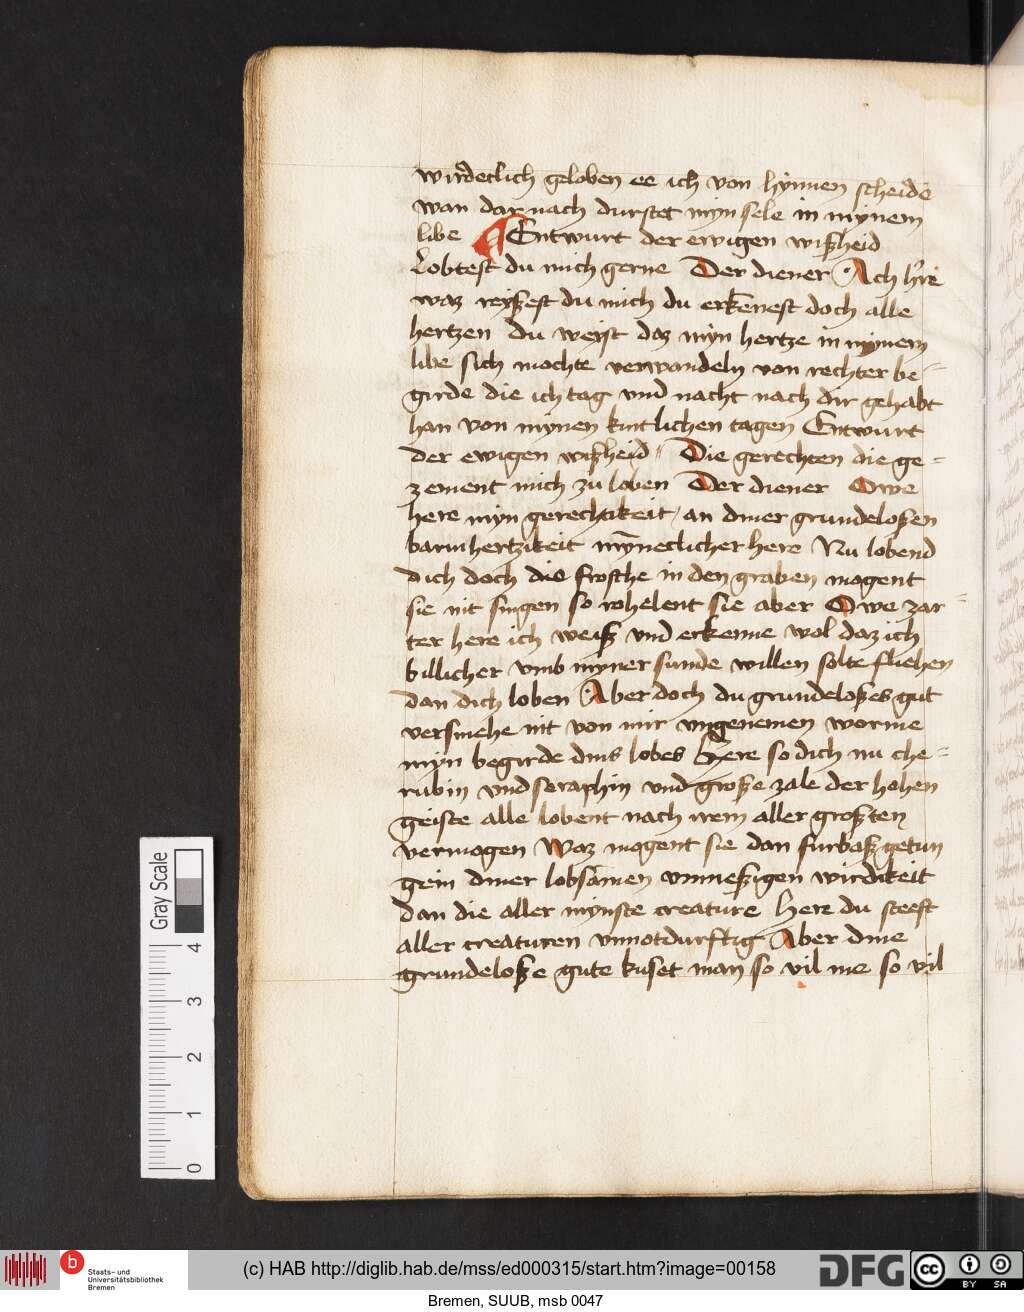 wirdeclich geloben ee ich von hynnen scheide
wan dar nach durstet myn sele in mynem
libe Entwurt der ewigen wißheid
Lobtest du mich gerne Der diener Ach h're
waz reyßest du mich du erkēnest doch alle
hertzen du weist daz myn hertze in mynem
libe sich mochte verwandeln von rechter be-
girde die ich tag vnd nacht nach dir gehabt
han von mynen kintlichen tagen Entwurt
der ewigen wißheid Die gerechten die ge-
zement mich zu loben Der diener Owe
here myn gerechtikeit / an diner grundeloßen
barmhertzikeit mȳneclicher here Nu lobend
dich doch die frosche in den graben mogent
sie nit singen so rohelent sie aber Owe zar-
ter here ich weiß vnd erkenne wol daz ich
billicher vmb myner sunde willen solte fliehen
dan dich loben Aber doch du grundeloßes gut
versmehe nit von mir vngenemen worme
myn begirde dins lobes Here so dich nu che-
rubin vnd seraphin vnd große zale der hohen
geiste alle lobent nach irem aller großten
vermogen Waz mogent sie dan furbaß getun
gein diner lobsamen vnmeßigen wirdikeit
dan die aller mynste creature Here du steest
aller creaturen vnnotdurftig Aber dine
grundeloße gute kuset man so vil me so vil
Gray Scale
4
3
2
1
0
b
Staats- und
Universitätsbibliothek
Bremen
(c) HAB http://diglib.hab.de/mss/ed000315/start.htm?image=00158
DFG
cc
BY SA
Bremen, SUUB, msb 0047